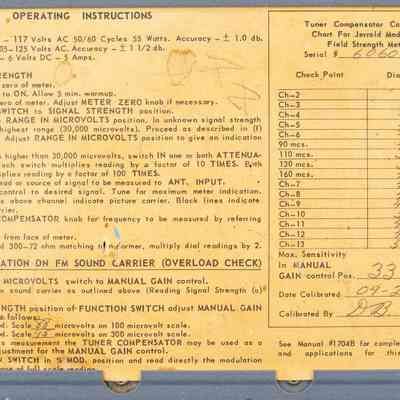 OPERATING INSTRUCTIONS
117 Volts AC 50/60 Cycles 55 Watts. Accuracy - ± 1.0 db.
105-125 Volts AC. Accuracy - ± 1 1/2 db.
- 6 Volts DC - 5 Amps.
STRENGTH
zero of meter.
to ON. Allow 5 min. warmup.
zero of meter. Adjust METER ZERO knob if necessary.
SWITCH to SIGNAL STRENGTH position.
RANGE IN MICROVOLTS position. In unknown signal strength
highest range (30,000 microvolts). Proceed as described in (f)
Adjust RANGE IN MICROVOLTS to position to give an indication
higher than 30,000 microvolts, switch IN one or both ATTENUA-
Each switch multiplies reading by a factor of 10 TIMES. Both
multiplies reading by a factor of 100 TIMES.
lead or source of signal to be measured to ANT. INPUT.
control to desired signal. Tune for maximum meter indication.
above channel indicate picture carrier. Black lines indicate
carrier.
COMPENSATOR knob for frequency to be measured by referring
from face of meter.
300-72 ohm matching transformer, multiply dial readings by 2.
ATION ON FM SOUND CARRIER (OVERLOAD CHECK)
MICROVOLTS switch to MANUAL GAIN control.
sound carrier as outlined above (Reading Signal Strength (a)
STRENGTH position of FUNCTION SWITCH adjust MANUAL GAIN
as follows:
Mod. Scale microvolts on 100 microvolt scale.
Mod. Scale microvolts on 300 microvolt scale.
measurements may be used as
measurement the TUNER COMPENSATOR may be used as
adjustment for the MANUAL GAIN control.
SWITCH in % MOD. position and read directly the modulation
range of full scale reading.
Tuner Compensator Ca
Chart For Jerrold Mod
Field Strength Met
Serial # 6060
Check Point Dia
Ch-2
Ch-3
Ch-4
Ch-5
Ch-6
90 mcs.
110 mcs.
130 mcs.
160 mcs.
Ch-7
Ch-8
Ch-9
Ch-10
Ch-11
Ch-12
Ch-13
Max. Sensitivity
In MANUAL
GAIN control Pos. 33
Date Calibrated 09-2
Calibrated By DB
See Manual #1704B for complete
and applications for this